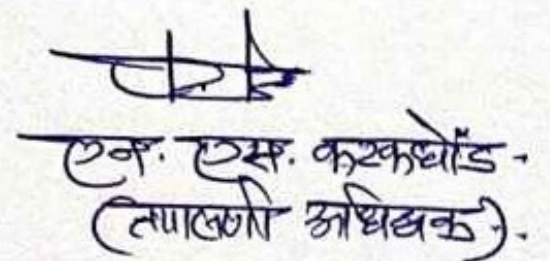 एन. एस. करकधोंड.
(तपासणी अधिक्षक).